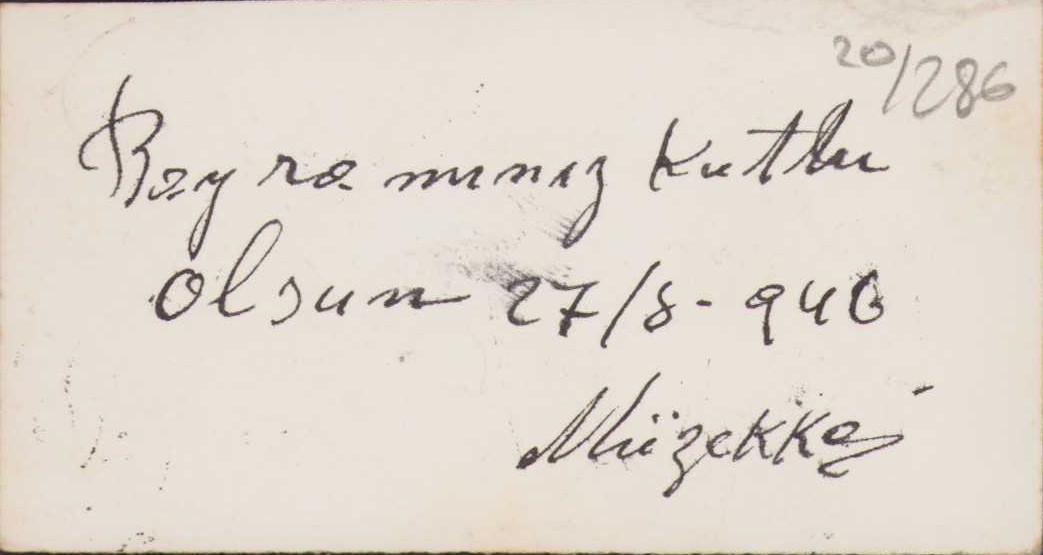 20/286
Bayramınız Kutlu
olsun 27/8-946
Müzekkâ